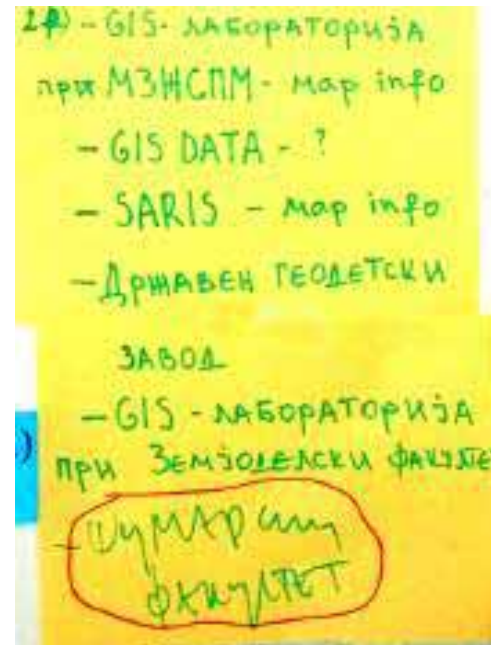 2) - GIS - ЛАБОРАТОРИЈА
при МЗЖСПМ - Map info
- GIS DATA - ?
- SARIS - Map info
- ДРЖАВЕН ГЕОДЕТСКИ
ЗАВОД
- GIS - ЛАБОРАТОРИЈА
)
ПРИ ЗЕМЈОДЕЛСКИ ФАКУЛТЕ
- ШУМАРСКИ
ФАКУЛТЕТ